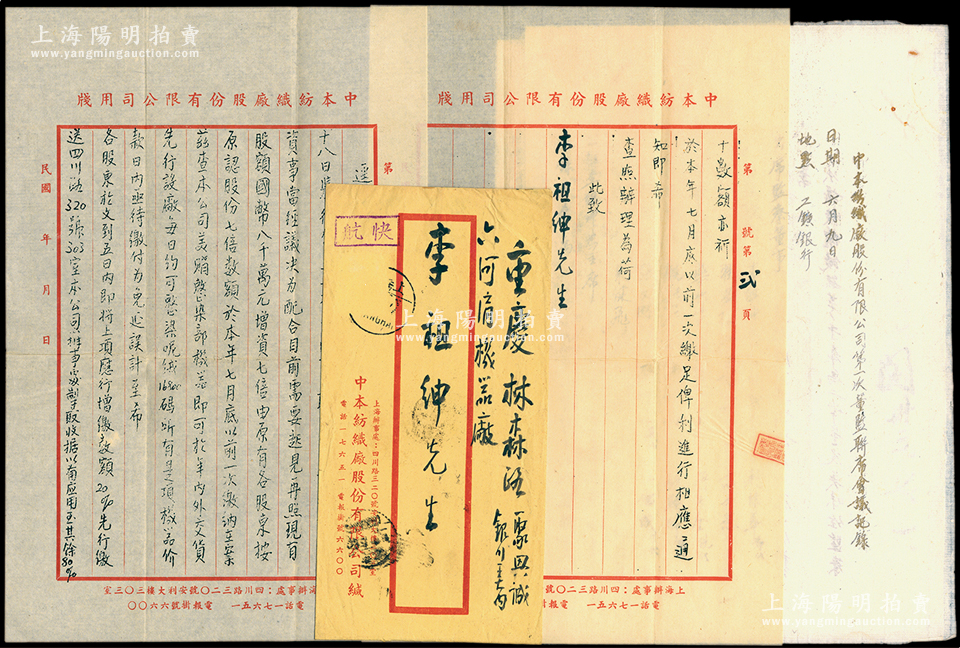 上海陽明拍賣
www.yangmingauction.com
中本紡織廠股份有限公司用牋
中本紡織廠股份有限公司用牋
第 號第 弍 頁
十數額亦祈
於本年七月底以前一次繳足俾利進行相應函通
知即希
查照辦理為荷
此致
李祖紳先生
上海辦事處：四川路三二〇號安利大樓三〇三室
電話一七六五一 電報掛號六六〇〇
第
逕
十八日
資事當經議決為配合目前需要起見再照現有
股額國幣八千萬元增資七倍由原有各股東按
原認股份七倍數額於本年七月底以前一次繳納至案
茲查本公司美購整染部機器即可於年內外交貨
先行設廠每日約可整染呢絨16800碼所有是項機器價
款日內亟待繳付為免延誤計至希
各股東於文到五日內即將上項應行增繳款額20%先行繳
送四川路320號303室本公司辦事處製取收據以備應用至其餘80%
民國 年 月 日
快航
重慶林森路
六河溝機器廠
聚興誠
銀行
李祖紳先生
中本紡織廠股份有限公司緘
上海辦事處：四川路三二〇號
電話一七六五一 電報掛號六六〇〇
中本紡織廠股份有限公司第一次董監聯席會議記錄
日期 六月九日
地點 工礦銀行
上海陽明拍賣
www.yangmingauction.com
上海陽明拍賣
www.yangmingauction.com